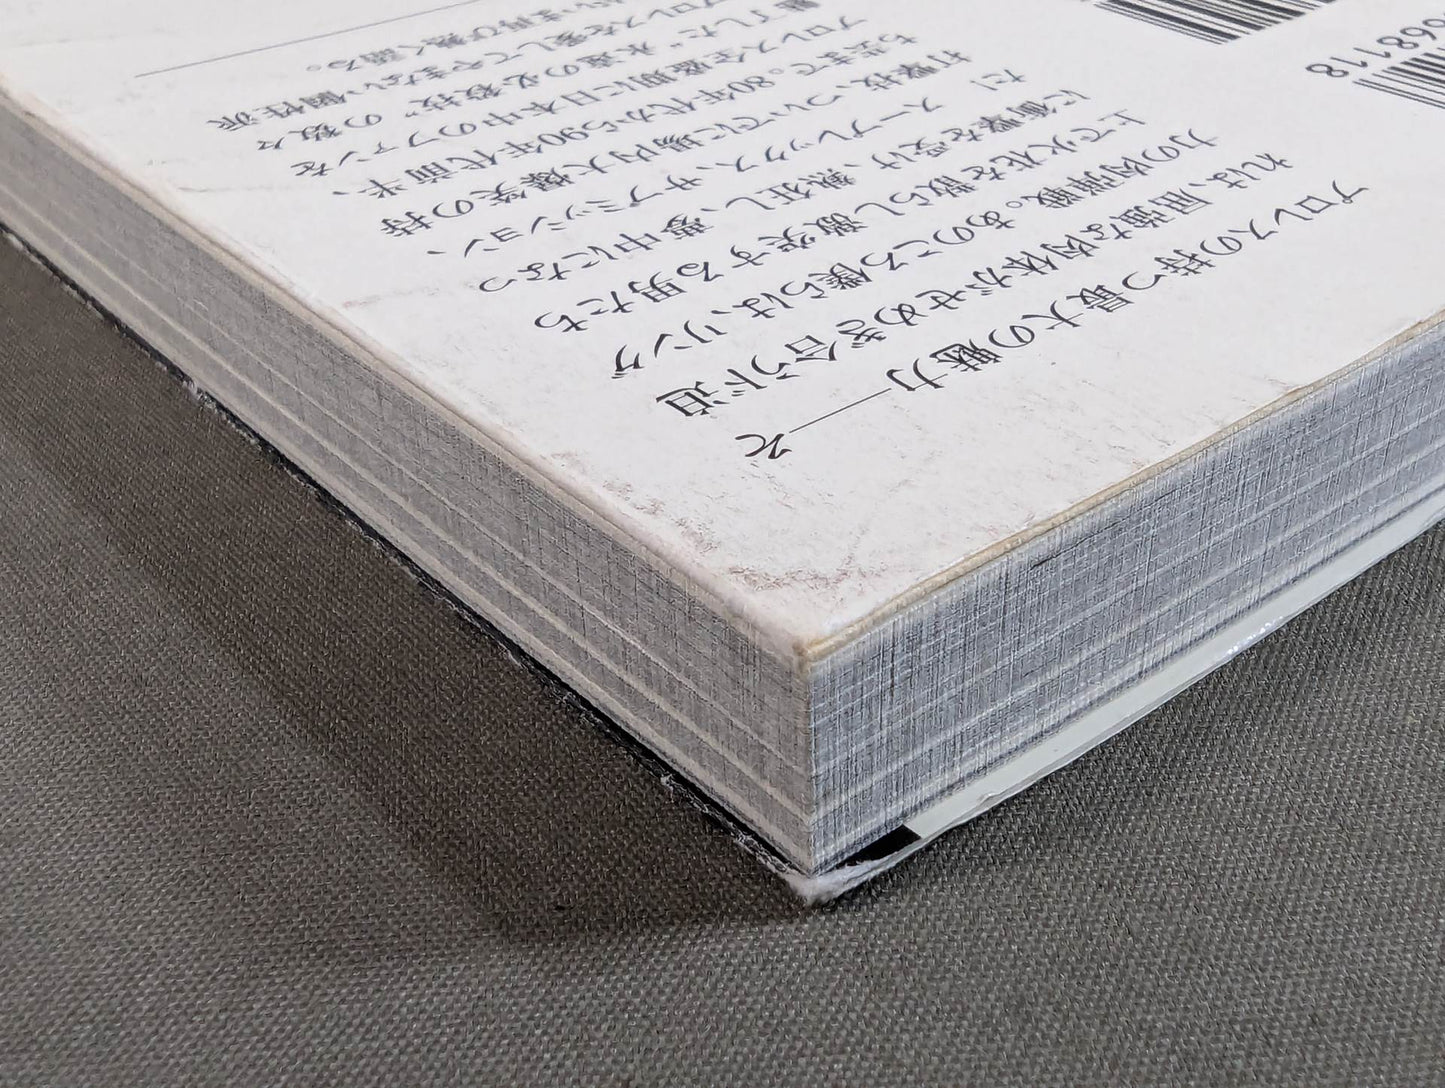 プロレスの持つ最大の魅力――そ
れは、屈強な肉体がせめぎ合うド迫
力の肉弾戦。あのころ僕らは、リング
上で火花を散らし激突する男たち
に衝撃を受け、熱狂し、夢中になっ
た!
スープレックス、サブミッション、
打撃技、ついでに場内大爆笑の持
ち芸まで。80年代から90年代前半、
プロレス全盛期に日本中のファンを
魅了した“永遠の必殺技”の数々
プロレスを愛してやまない個性派
いま再び熱く語る。
68118